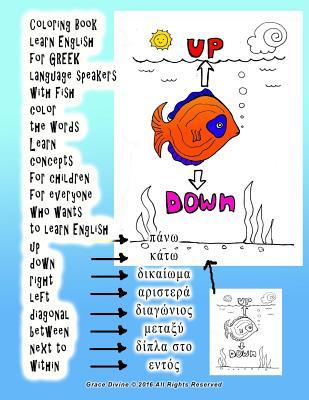 Coloring Book
learn English
for GREEK
language speakers
with fish
color
the words
Learn
concepts
for children
for everyone
who wants
to learn English
up
down
right
left
diagonal
between
next to
within
UP
DOWN
πάνω
κάτω
δικαίωμα
αριστερά
διαγώνιος
μεταξύ
δίπλα στο
εντός
UP
DOWN
Grace Divine © 2016 All Rights Reserved